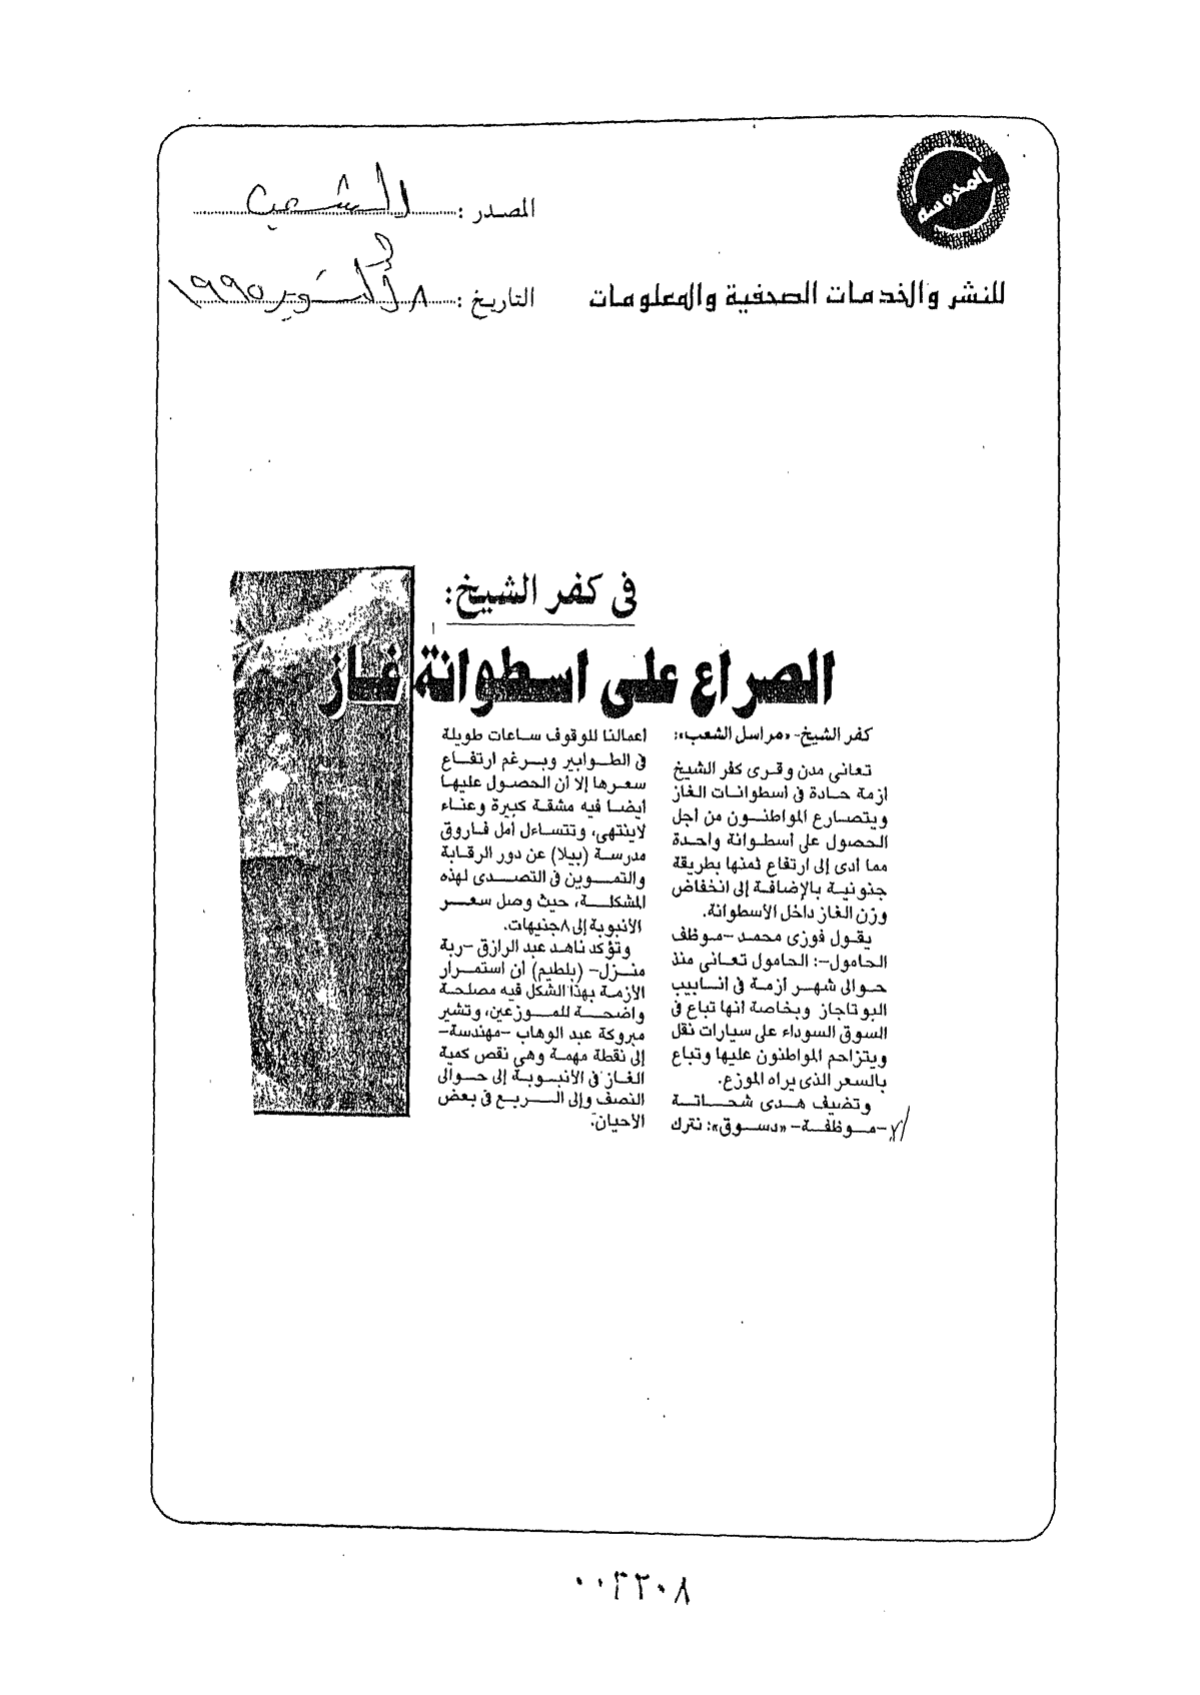 المحروسة
المصدر : الشعب
للنشر والخدمات الصحفية والمعلومات
التاريخ : ٨ أكتوبر ١٩٩٥
فى كفر الشيخ:
الصراع على اسطوانة غاز
كفر الشيخ- «مراسل الشعب»:
تعانى مدن وقرى كفر الشيخ
أزمة حادة فى اسطوانات الغاز
ويتصارع المواطنون من أجل
الحصول على أسطوانة واحدة
مما أدى إلى ارتفاع ثمنها بطريقة
جنونية بالإضافة إلى انخفاض
وزن الغاز داخل الأسطوانة.
يقول فوزى محمد -موظف
الحامول-: الحامول تعانى منذ
حوالى شهر أزمة فى أنابيب
البوتاجاز وبخاصة أنها تباع فى
السوق السوداء على سيارات نقل
ويتزاحم المواطنون عليها وتباع
بالسعر الذى يراه الموزع.
وتضيف هدى شحاتة
-موظفة- «دسوق»: نترك
أعمالنا للوقوف ساعات طويلة
فى الطوابير وبرغم ارتفاع
سعرها إلا أن الحصول عليها
أيضا فيه مشقة كبيرة وعناء
لاينتهى، وتتساءل أمل فاروق
مدرسة (بيلا) عن دور الرقابة
والتموين فى التصدى لهذه
المشكلة، حيث وصل سعر
الأنبوبة إلى ٨جنيهات.
وتؤكد ناهد عبد الرازق -ربة
منزل- (بلطيم) أن استمرار
الأزمة بهذا الشكل فيه مصلحة
واضحة للموزعين، وتشير
مبروكة عبد الوهاب -مهندسة-
إلى نقطة مهمة وهى نقص كمية
الغاز فى الأنبوبة إلى حوالى
النصف وإلى الربع فى بعض
الأحيان.
٠٠٣٢٠٨